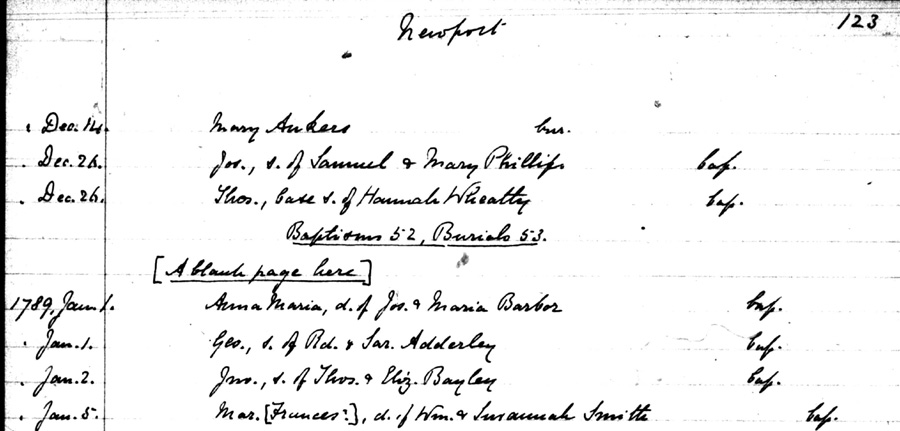 123
Newport
. Dec. 14. Mary Ankers bur.
. Dec. 26. Jos., s. of Samuel & Mary Phillips bap.
. Dec. 26. Thos., base s. of Hannah Wheatly bap.
Baptisms 52, Burials 53.
[A blank page here]
1789, Jan. 1. Anna Maria, d. of Jos. & Maria Barbor bap.
. Jan. 1. Geo., s. of Rd. & Sar. Adderley bap.
. Jan. 2. Jno., s. of Thos. & Eliz. Bayley bap.
. Jan. 5. Mar. [Frances?], d. of Wm. & Susannah Smith bap.